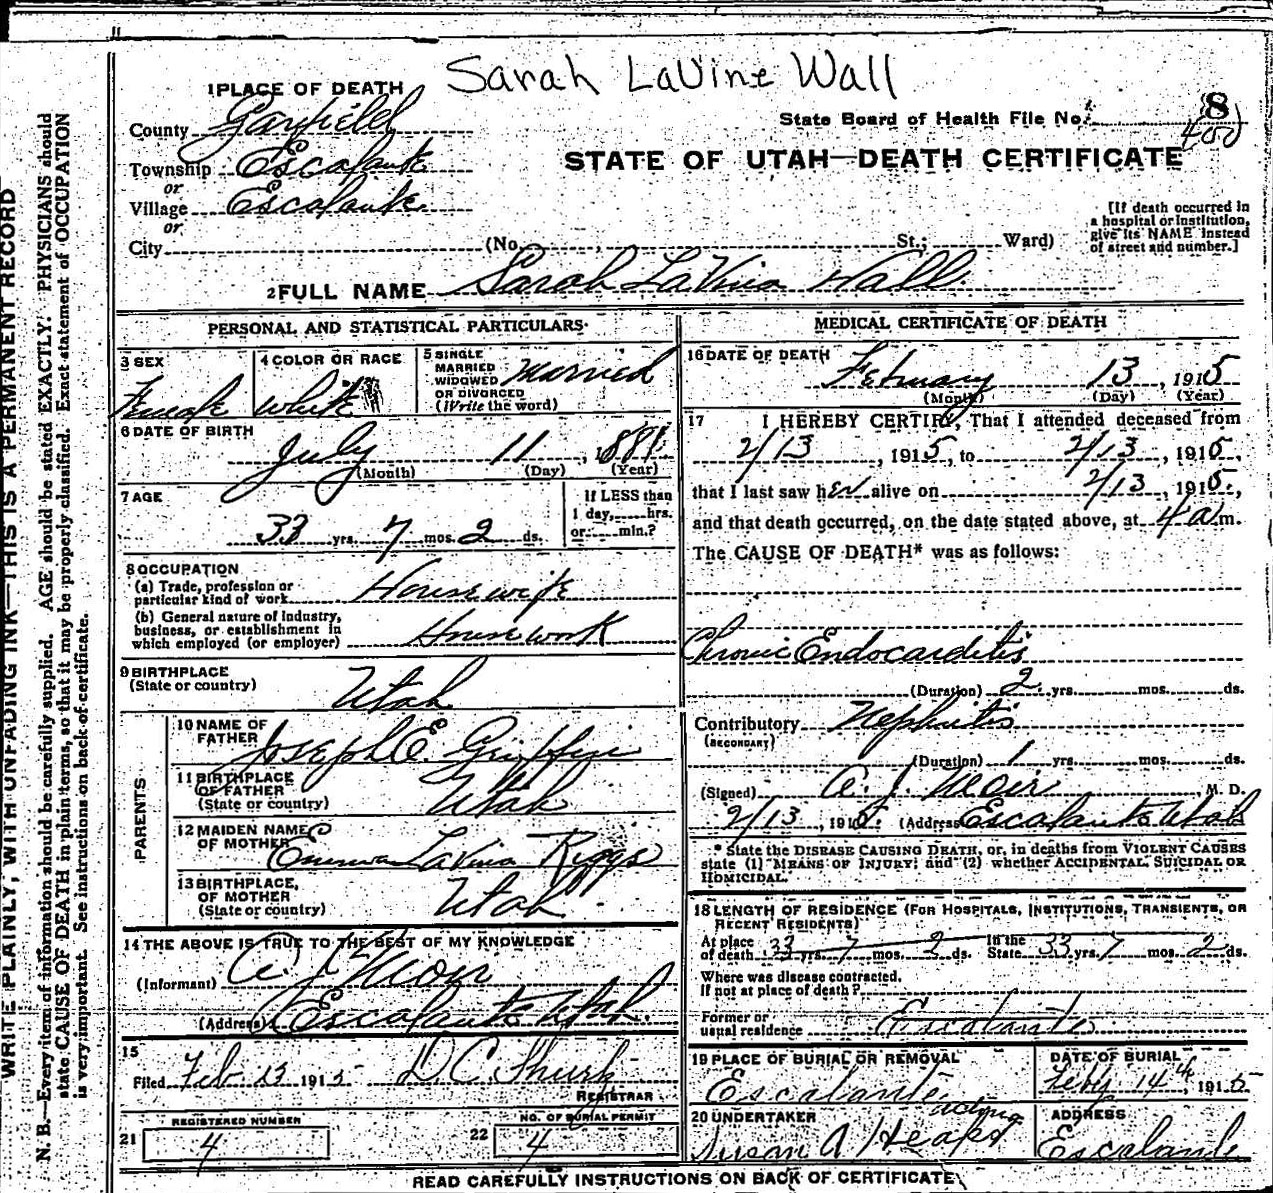 Sarah LaVine Wall
1 PLACE OF DEATH
County Garfield
State Board of Health File No. 8
400
Township Escalante
or
Village Escalante
or
STATE OF UTAH—DEATH CERTIFICATE
[If death occurred in
a hospital or institution,
give its NAME instead
of street and number.]
City (No. , St.; Ward)
2 FULL NAME Sarah LaVina Wall
PERSONAL AND STATISTICAL PARTICULARS
3 SEX
Female
4 COLOR OR RACE
White
5 SINGLE
MARRIED
WIDOWED
OR DIVORCED
(Write the word)
Married
6 DATE OF BIRTH
July 11, 1881
(Month) (Day) (Year)
7 AGE
33 yrs. 7 mos. 2 ds.
If LESS than
1 day, hrs.
or min.?
8 OCCUPATION
(a) Trade, profession or
particular kind of work Housewife
(b) General nature of industry,
business, or establishment in
which employed (or employer) Housework
9 BIRTHPLACE
(State or country) Utah
PARENTS
10 NAME OF
FATHER Joseph E. Griffin
11 BIRTHPLACE
OF FATHER
(State or country) Utah
12 MAIDEN NAME
OF MOTHER Emma LaVina Riggs
13 BIRTHPLACE,
OF MOTHER
(State or country) Utah
14 THE ABOVE IS TRUE TO THE BEST OF MY KNOWLEDGE
(Informant) A. J. Moir
(Address) Escalante Utah.
15
Filed Feb 13 1915 D. C. Shurtz
REGISTRAR
21 REGISTERED NUMBER
4
22 NO. OF BURIAL PERMIT
4
MEDICAL CERTIFICATE OF DEATH
16 DATE OF DEATH
February 13, 1915
(Month) (Day) (Year)
17 I HEREBY CERTIFY, That I attended deceased from
2/13, 1915, to 2/13, 1915,
that I last saw her alive on 2/13, 1915,
and that death occurred, on the date stated above, at 4 a m.
The CAUSE OF DEATH* was as follows:
Chronic Endocarditis
(Duration) 2 yrs. mos. ds.
Contributory Nephritis
(SECONDARY)
(Duration) 1 yrs. mos. ds.
(Signed) A. J. Moir, M. D.
2/13, 1915. (Address) Escalante Utah
* State the DISEASE CAUSING DEATH, or, in deaths from VIOLENT CAUSES
state (1) MEANS OF INJURY; and (2) whether ACCIDENTAL, SUICIDAL OR
HOMICIDAL.
18 LENGTH OF RESIDENCE (FOR HOSPITALS, INSTITUTIONS, TRANSIENTS, OR
RECENT RESIDENTS)
At place
of death 33 yrs. 7 mos. 2 ds. In the
State 33 yrs. 7 mos. 2 ds.
Where was disease contracted,
If not at place of death?
Former or
usual residence Escalante
19 PLACE OF BURIAL OR REMOVAL
Escalante
DATE OF BURIAL
Feby 14th 1915
20 UNDERTAKER
acting
Susan A Heaps
ADDRESS
Escalante
READ CAREFULLY INSTRUCTIONS ON BACK OF CERTIFICATE
WRITE PLAINLY, WITH UNFADING INK—THIS IS A PERMANENT RECORD
N. B.—Every item of information should be carefully supplied. AGE should be stated EXACTLY. PHYSICIANS should
state CAUSE OF DEATH in plain terms, so that it may be properly classified. Exact statement of OCCUPATION
is very important. See instructions on back of certificate.